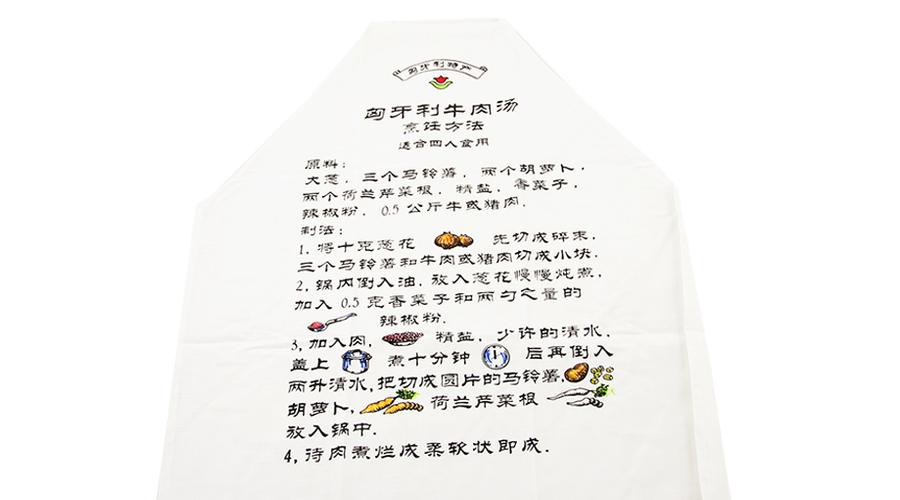 匈牙利特产
匈牙利牛肉汤
烹饪方法
适合四人食用
原料:
大葱, 三个马铃薯, 两个胡萝卜,
两个荷兰芹菜根, 精盐, 香菜子,
辣椒粉, 0.5 公斤牛或猪肉.
制法:
1, 将十克葱花 先切成碎末,
三个马铃薯和牛肉或猪肉切成小块.
2, 锅内倒入油, 放入葱花慢慢炖煮,
加入 0.5 克香菜子和两勺之量的
辣椒粉.
3, 加入肉, 精盐, 少许的清水,
盖上 煮十分钟 后再倒入
两升清水, 把切成圆片的马铃薯,
胡萝卜, 荷兰芹菜根
放入锅中.
4, 待肉煮烂成柔软状即成.